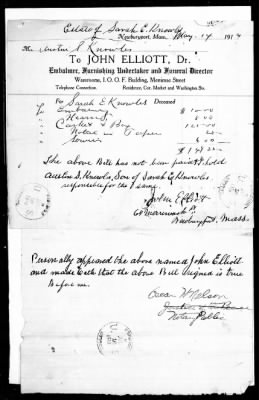 Estate of Sarah E. Knowles
Newburyport, Mass., May 14 1914
Mr Austin S. Knowles
To JOHN ELLIOTT, Dr.
Embalmer, Furnishing Undertaker and Funeral Director
Warerooms, I. O. O. F. Building, Merrimac Street
Telephone Connection. Residence, Cor. Market and Washington Sts.
For Sarah E Knowles Deceased
" Embalming $10.00
" Hearse
" Casket & Box
" Notice in Paper
The above Bill has not been paid & hold
Austin S. Knowles, Son of Sarah E Knowles
responsible for the same.
John Elliott
Newburyport, Mass.
Personally appeared the above named John Elliott
and made Oath that the above Bill signed is true
Before me.
Oscar H Nelson
Justice of the Peace
Notary Public